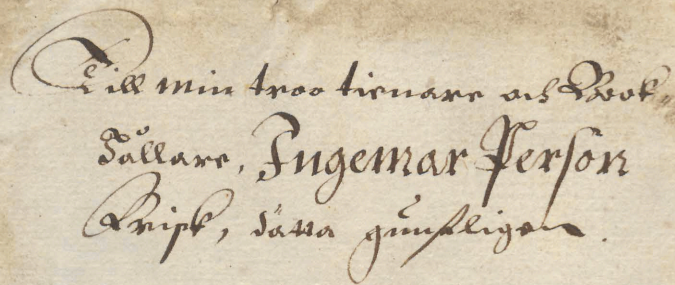 Till min troo tienare och Book-
hållare, Ingemar Person
Frisk, dätta gunstligen.